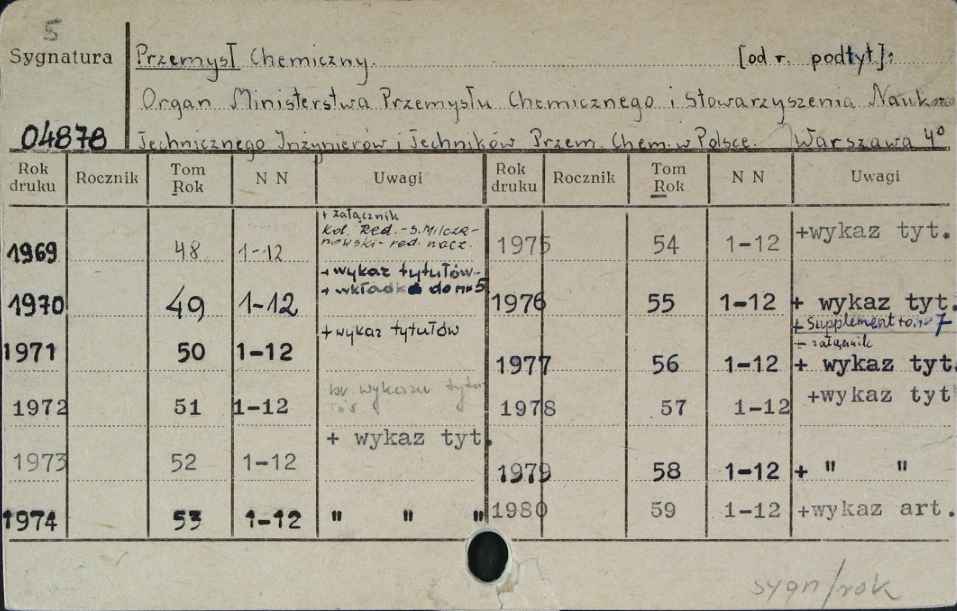 5
Sygnatura
04878
Przemysł Chemiczny. [od r. podtyt]:
Organ Ministerstwa Przemysłu Chemicznego i Stowarzyszenia Naukowo
Technicznego Inżynierów i Techników Przem. Chem. w Polsce. Warszawa 4°
Rok druku Rocznik Tom Rok N N Uwagi Rok druku Rocznik Tom Rok N N Uwagi
1969 48 1-12 + załącznik
Kol. Red. - S. Milcza-
nowski - red. nacz.
1970 49 1-12 + wykaz tytułów
+ wkładka do nr 5
1971 50 1-12 + wykaz tytułów
1972 51 1-12 wykazu
1973 52 1-12 + wykaz tyt.
1974 53 1-12 " " "
1975 54 1-12 +wykaz tyt.
1976 55 1-12 + wykaz tyt.
+ Supplement to nr 7
+ załącznik
1977 56 1-12 + wykaz tyt.
1978 57 1-12 +wykaz tyt
1979 58 1-12 + " "
1980 59 1-12 +wykaz art.
sygn/rok